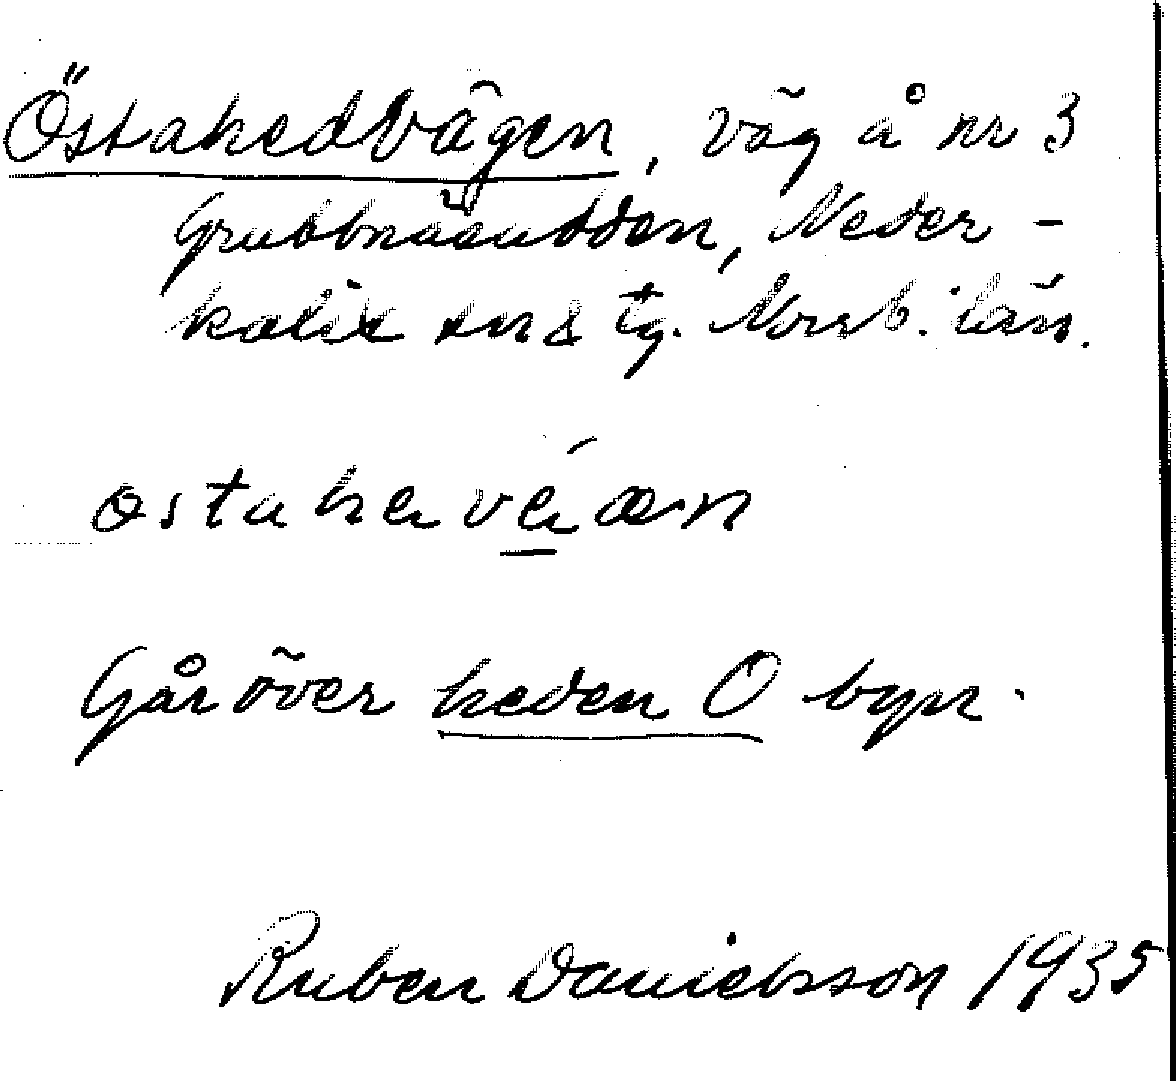 Östahedvägen, väg å nr 3
Grubbnäsudden, Neder-
kalix sn & tg. Norrb. län.
Går över heden O byn.
Ruben Danielsson 1935